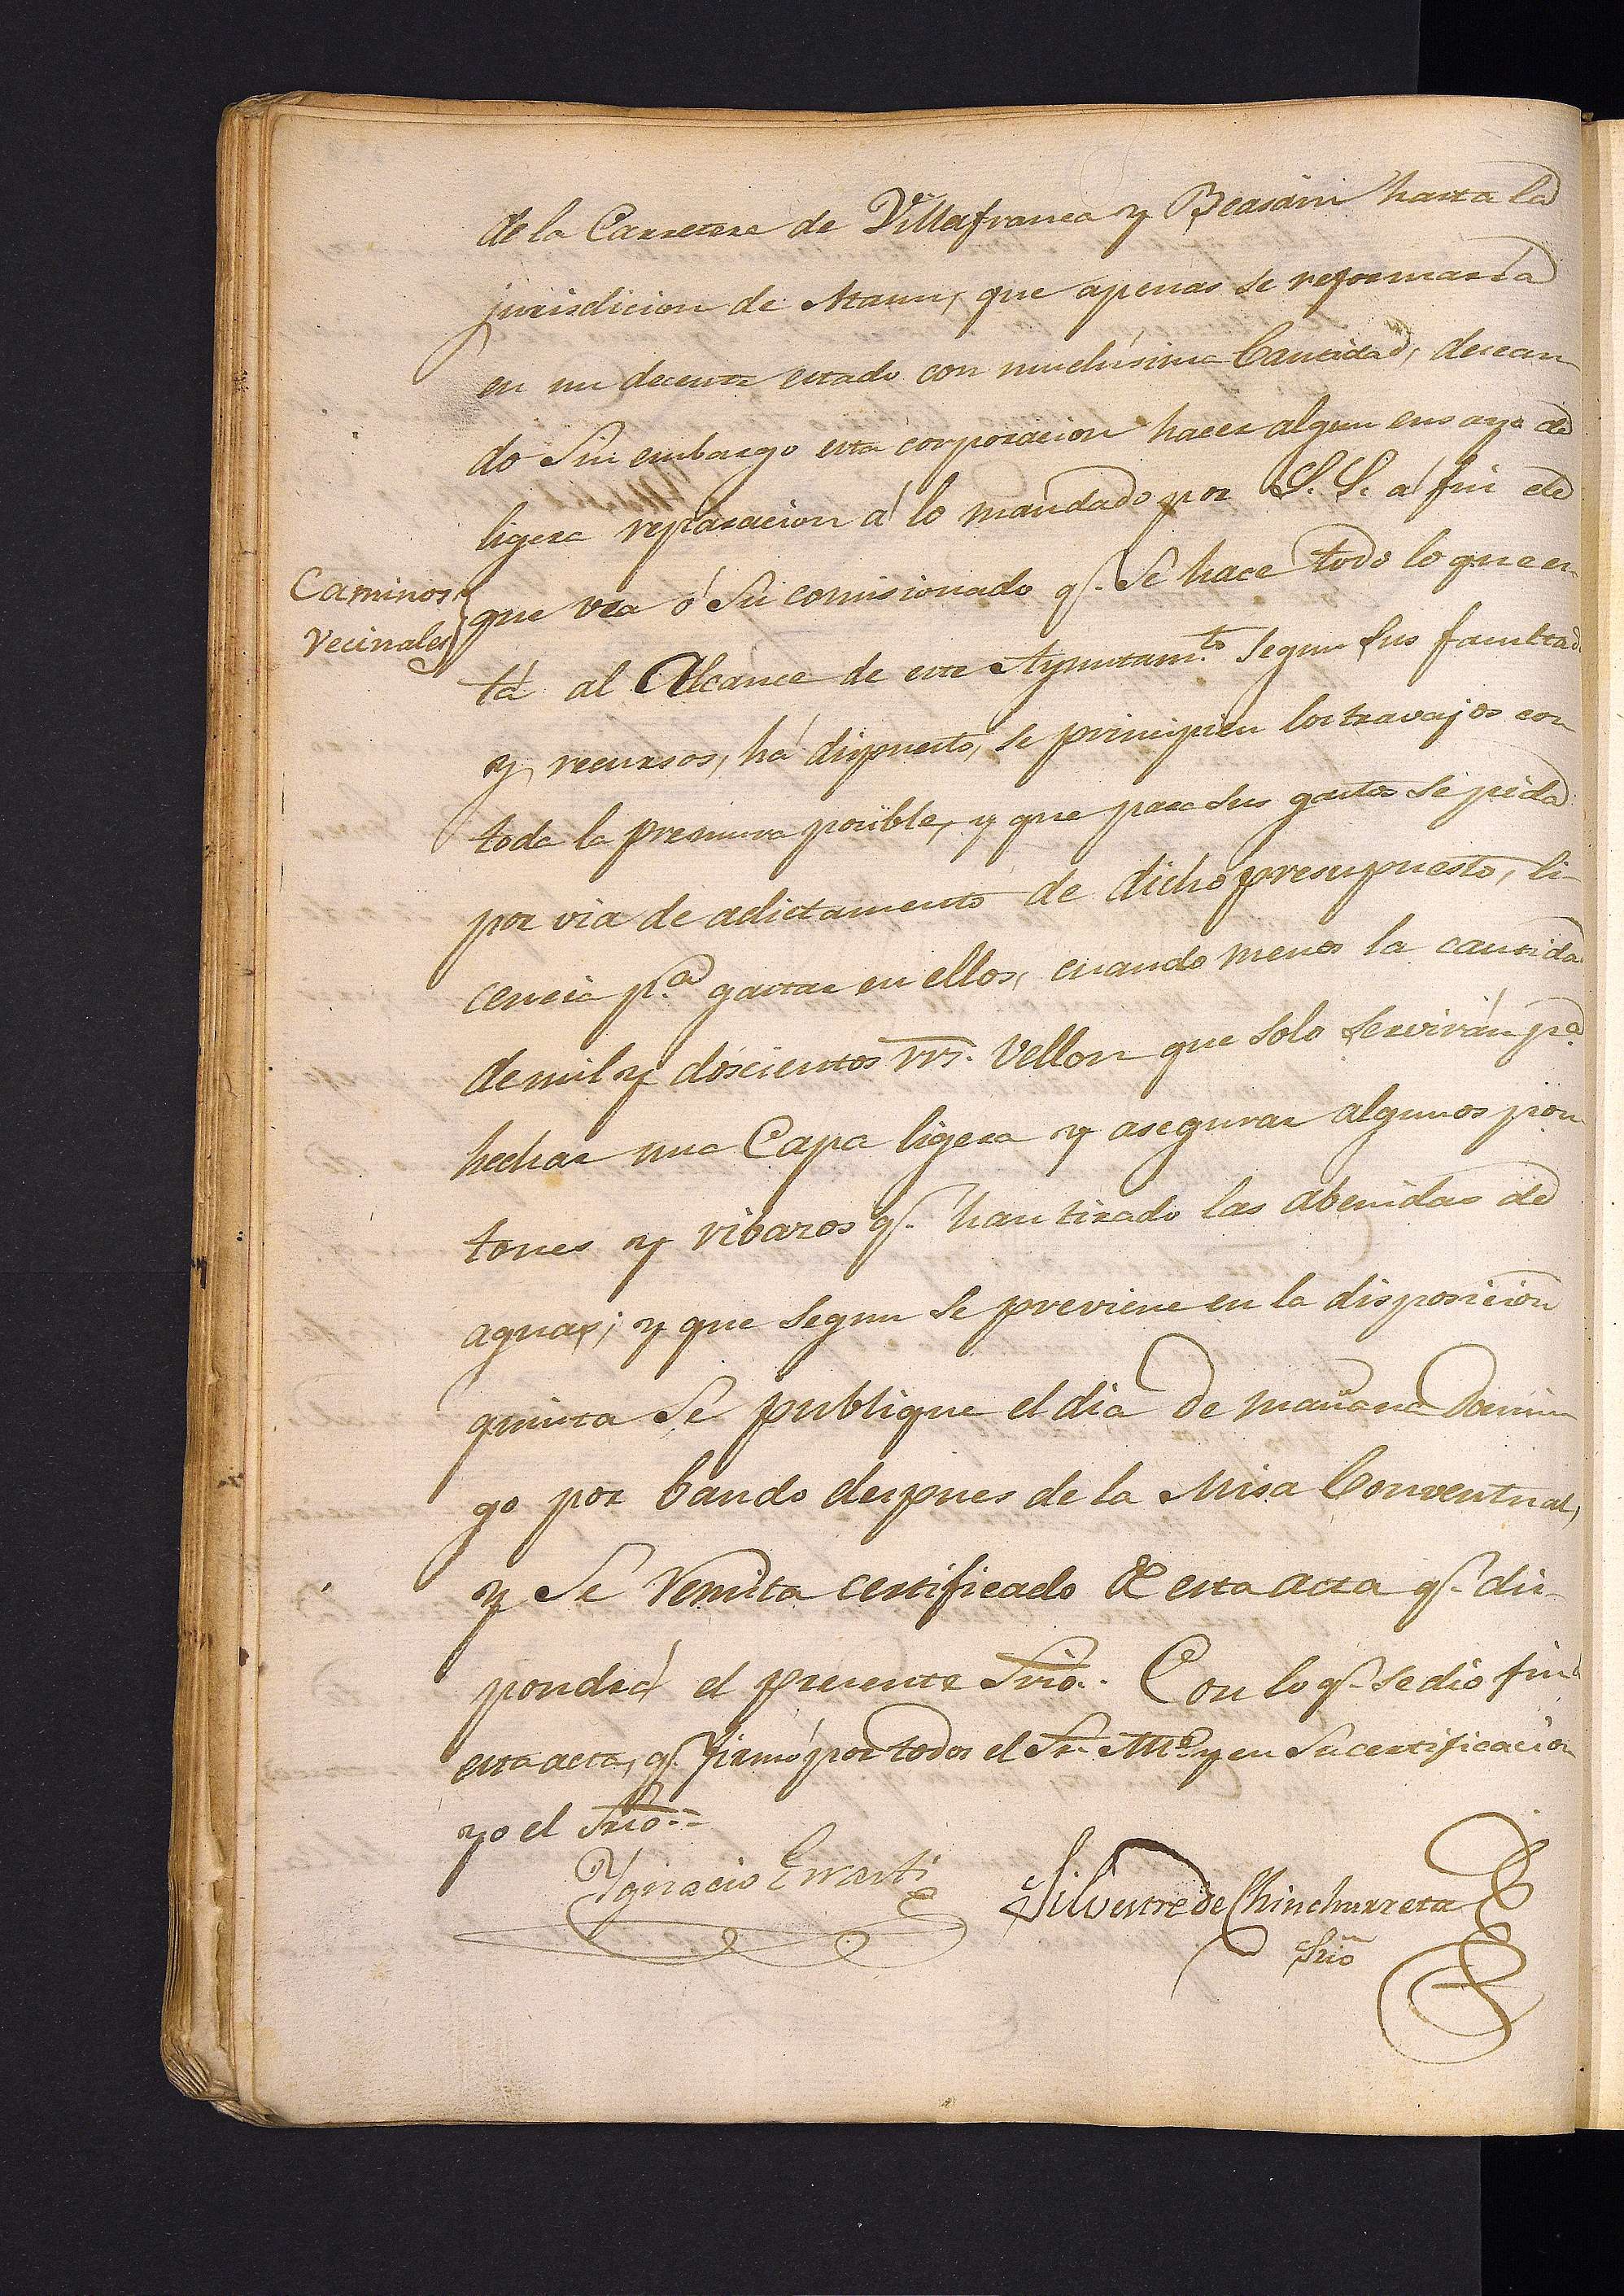 de la Carretera de Villafranca y Beasain hasta la
jurisdicion de Ataun, que apenas se reformaria
en un decente estado con muchisima Cantidad, desean
do Sin embargo esta corporacion hacer algun ensayo de
ligera reparacion á lo mandado por S. S. á fin de
Caminos
Vecinales
que vea ó Su comisionado q.e Se hace todo lo que es
tá al Alcance de este Ayuntam.to Segun Sus facultad
y recursos, há dispuesto, se principien los travajos con
toda la premura posible, y que para Sus gastos Se pida
por via de adictamento de dicho presupuesto, li-
cencia p.a gastar en ellos, cuando menos la cantida
de mil y doscientos rrs. Vellon que solo Servirán p.a
hechar una Capa ligera y asegurar algunos pon
tones y ribazos q.e han tirado las abenidas de
aguas; y que Segun Se previene en la disposicion
quinta Se publique el dia de mañana Domin
go por bando despues de la Misa Conventual,
y Se remita certificado de esta acta q.e dis-
pondrá el presente Srio.. Con lo q.e se dió fin á
esta acta, q.e firmó por todos el Sr. Alc.e y en Su certificacion
yo el Srio.=
Ygnacio Errasti
Silvestre de Chinchurreta
Srio